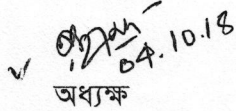 04.10.18
অধ্যক্ষ